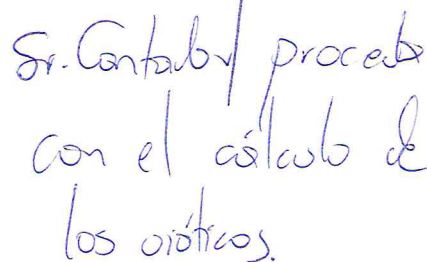 Sr. Contador proceda
con el cálculo de
los viáticos.